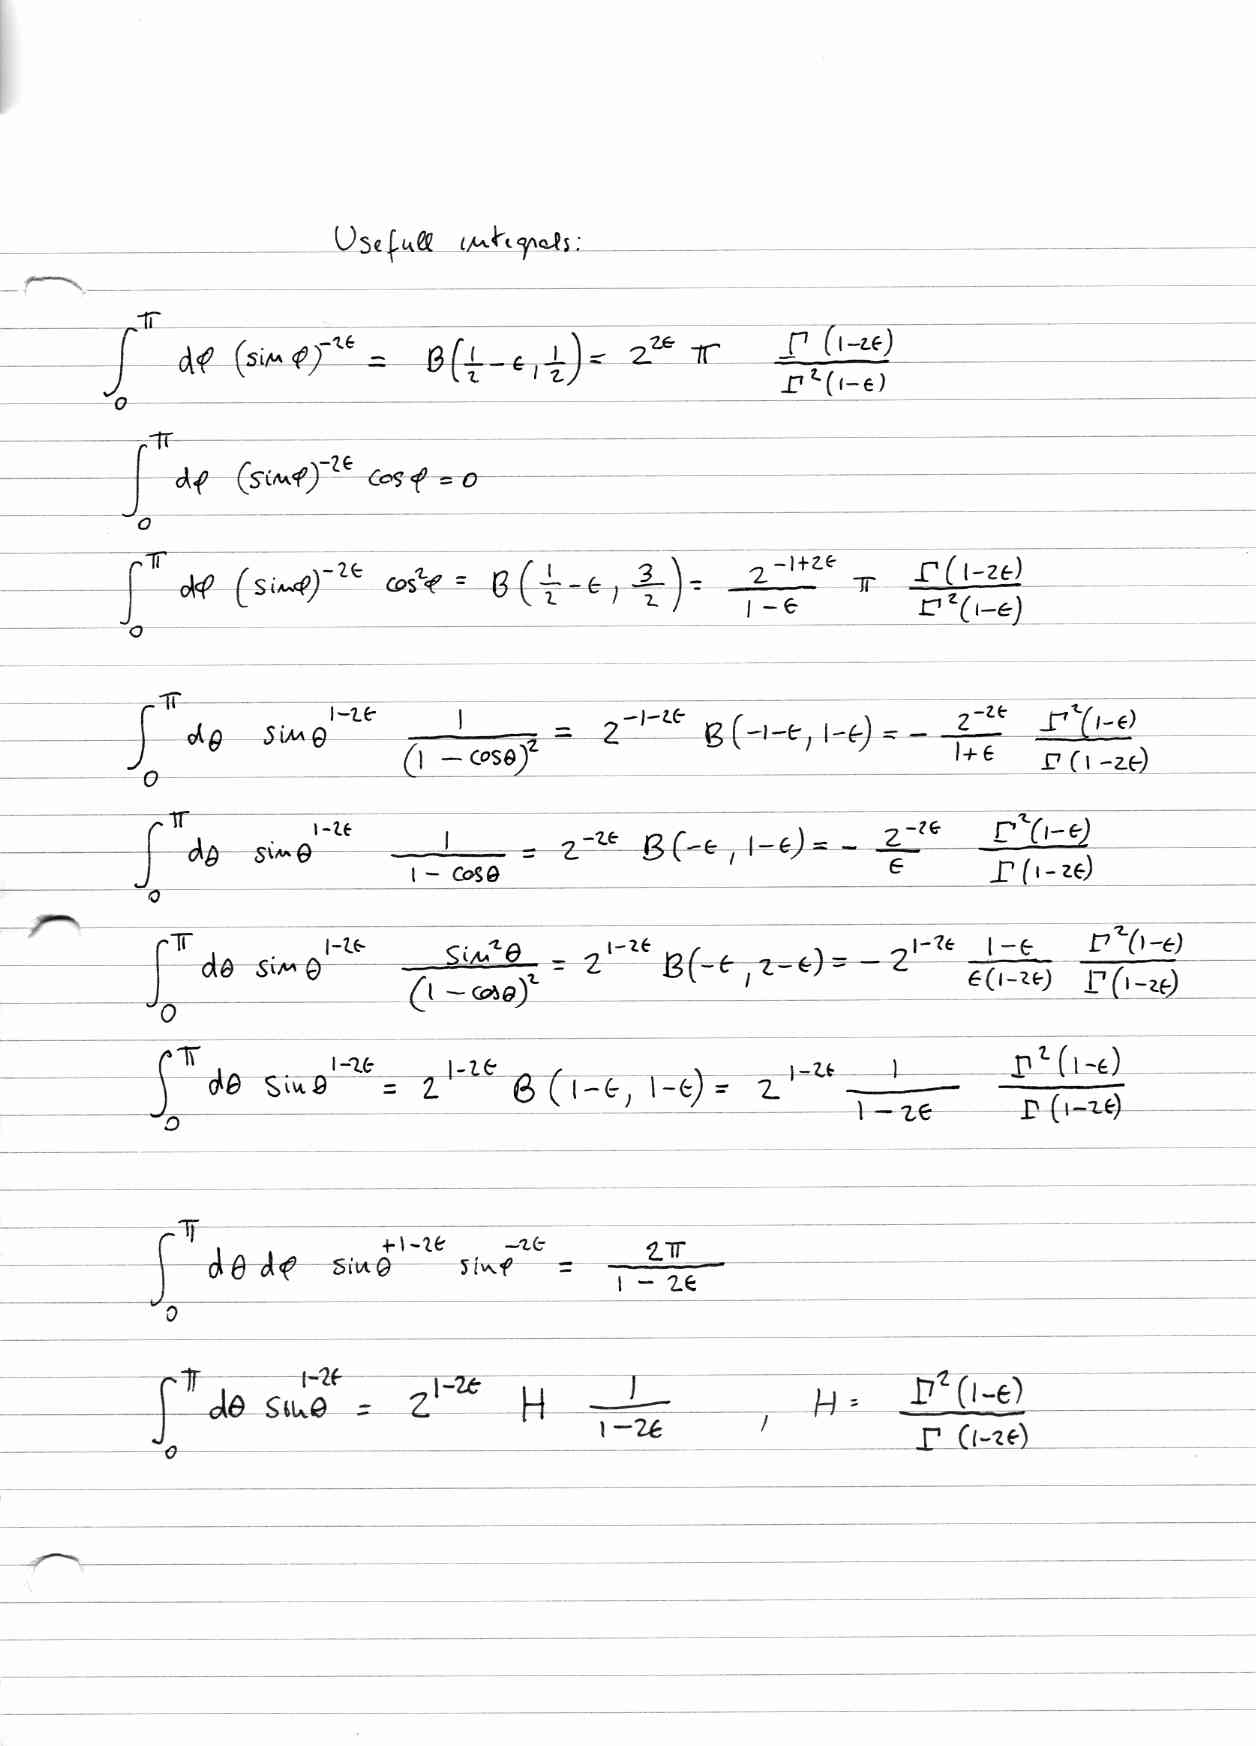 Usefull integrals:
∫_0^π dφ (sin φ)^{-2ϵ} = B(1/2 - ϵ, 1/2) = 2^{2ϵ} π Γ(1-2ϵ) / Γ²(1-ϵ)
∫_0^π dφ (sinφ)^{-2ϵ} cos φ = 0
∫_0^π dφ (sinφ)^{-2ϵ} cos²φ = B(1/2 - ϵ, 3/2) = 2^{-1+2ϵ} / (1-ϵ) π Γ(1-2ϵ) / Γ²(1-ϵ)
∫_0^π dθ sinθ^{1-2ϵ} 1 / (1 - cosθ)² = 2^{-1-2ϵ} B(-1-ϵ, 1-ϵ) = - 2^{-2ϵ} / (1+ϵ) Γ²(1-ϵ) / Γ(1-2ϵ)
∫_0^π dθ sinθ^{1-2ϵ} 1 / (1 - cosθ) = 2^{-2ϵ} B(-ϵ, 1-ϵ) = - 2^{-2ϵ} / ϵ Γ²(1-ϵ) / Γ(1-2ϵ)
∫_0^π dθ sinθ^{1-2ϵ} sin²θ / (1 - cosθ)² = 2^{1-2ϵ} B(-ϵ, 2-ϵ) = - 2^{1-2ϵ} (1-ϵ) / (ϵ(1-2ϵ)) Γ²(1-ϵ) / Γ(1-2ϵ)
∫_0^π dθ sinθ^{1-2ϵ} = 2^{1-2ϵ} B(1-ϵ, 1-ϵ) = 2^{1-2ϵ} 1 / (1-2ϵ) Γ²(1-ϵ) / Γ(1-2ϵ)
∫_0^π dθ dφ sinθ^{+1-2ϵ} sinφ^{-2ϵ} = 2π / (1-2ϵ)
∫_0^π dθ sinθ^{1-2ϵ} = 2^{1-2ϵ} H 1 / (1-2ϵ) , H = Γ²(1-ϵ) / Γ(1-2ϵ)